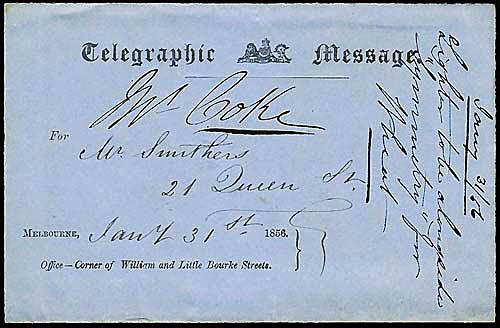 Telegraphic Message
Mr Coke
For
Mr. Smithers
21 Queen St.
MELBOURNE, Jany 31st 1856.
Office — Corner of William and Little Bourke Streets.
Jany 31/56
Lighter to be alongside
"Symmetry" for
Wheat